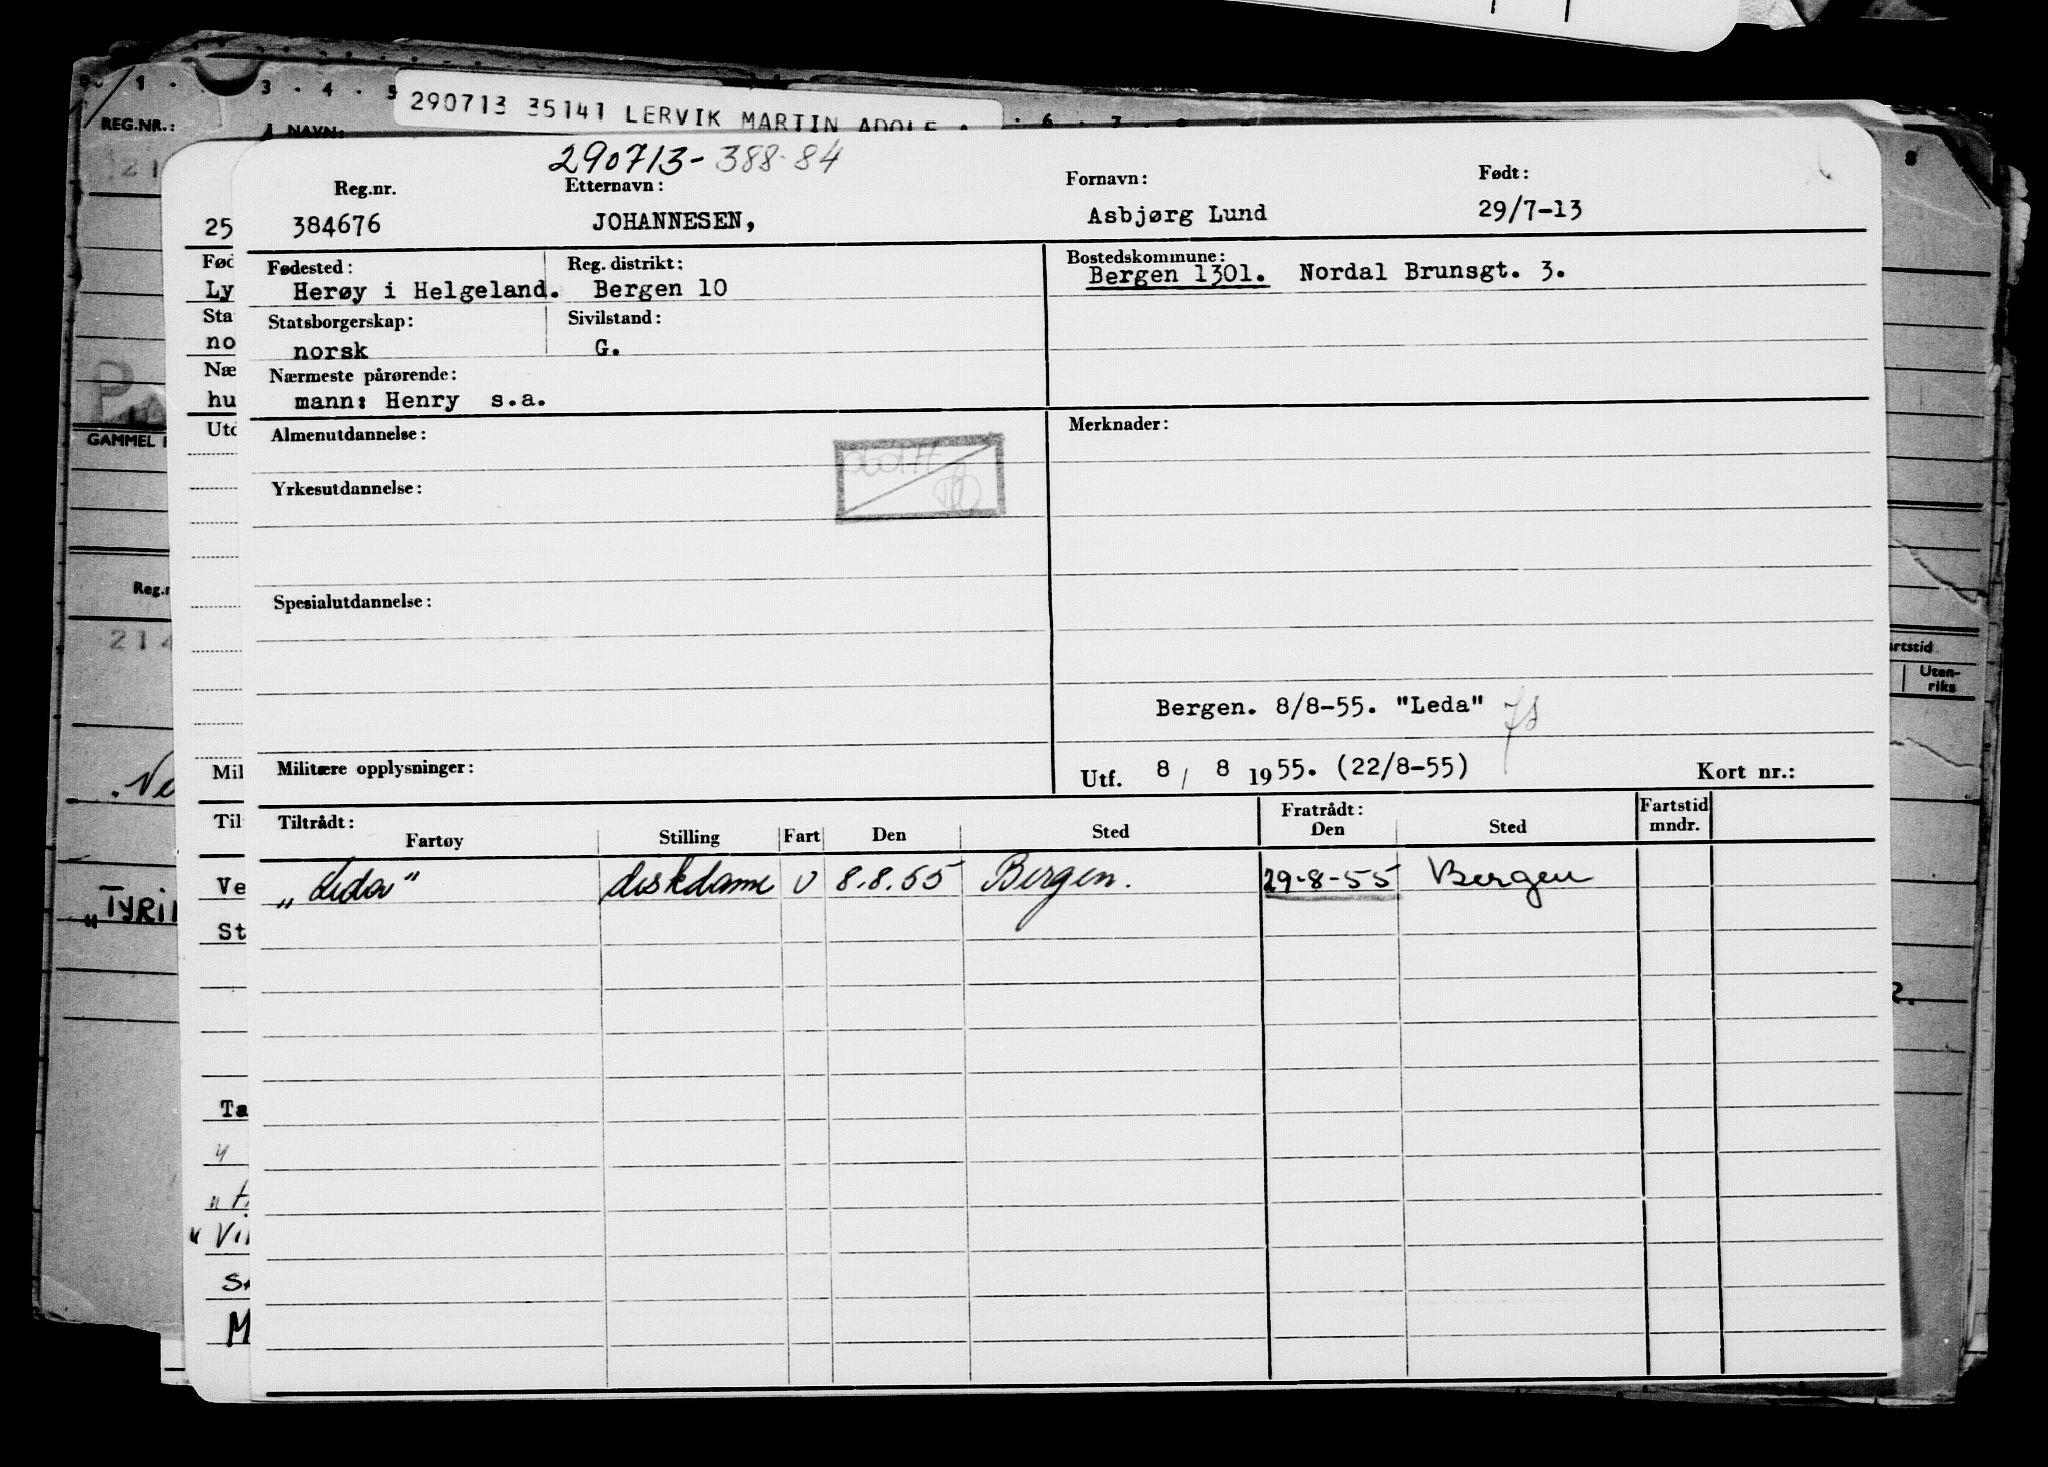 0 1 . 3 . 4 . 5 . 6 . 7 . 8
REG.NR.: NAVN:
290713 35141 LERVIK MARTIN ADOLF
290713-388-84
Reg.nr. Etternavn: Fornavn: Født:
384676 JOHANNESEN, Asbjørg Lund 29/7-13
Fødested: Reg. distrikt: Bostedskommune:
Herøy i Helgeland. Bergen 10 Bergen 1301. Nordal Brunsgt. 3.
Statsborgerskap: Sivilstand:
norsk G.
Nærmeste pårørende:
mann: Henry s.a.
Almenutdannelse: Merknader:
Yrkesutdannelse:
Spesialutdannelse:
Bergen. 8/8-55. "Leda"
Militære opplysninger: Utf. 8 / 8 1955. (22/8-55) Kort nr.:
Tiltrådt: Fratrådt: Fartstid
Fartøy Stilling Fart Den Sted Den Sted mndr.
"Leda" diskdame U 8.8.55 Bergen. 29-8-55 Bergen
25
Fød
Ly
Sta
no
Næ
hu
Utd
Mil
Til
Ve
St
Ta
"
Vi
M
GAMMEL
Reg.n
214
"TYRI
rtstid
Uten-
riks
R.